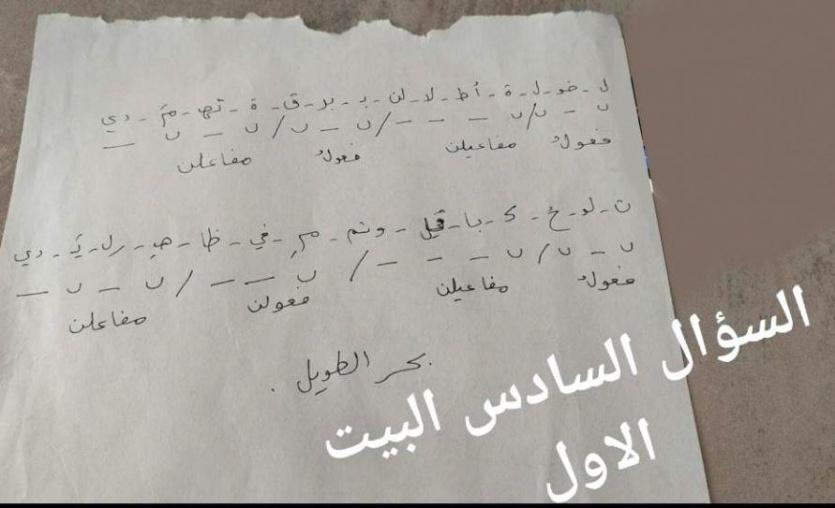 ل - خو - ل - ة - أط - لا - لن - بـ - بر - ق - ة - ثه - مَ - دي
ں - ں / ں - - - / ں - ں / ں - ں -
فعولُ مفاعيلن فعولُ مفاعلن
ت - لو - ح - ك - با - قل - وشـ - مِ - في - ظا - هـِ - رل - يَـ - دي
ں - ں / ں - - - / ں - - / ں - ں -
فعولُ مفاعيلن فعولن مفاعلن
بحر الطويل .
السؤال السادس البيت
الاول